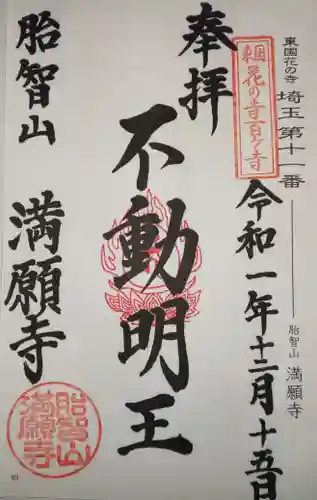 東国花の寺 埼玉第十一番
胎智山 満願寺
東国花の寺百ヶ寺
奉拝
令和一年十二月十五日
不動明王
胎智山
満願寺
胎智山
満願寺